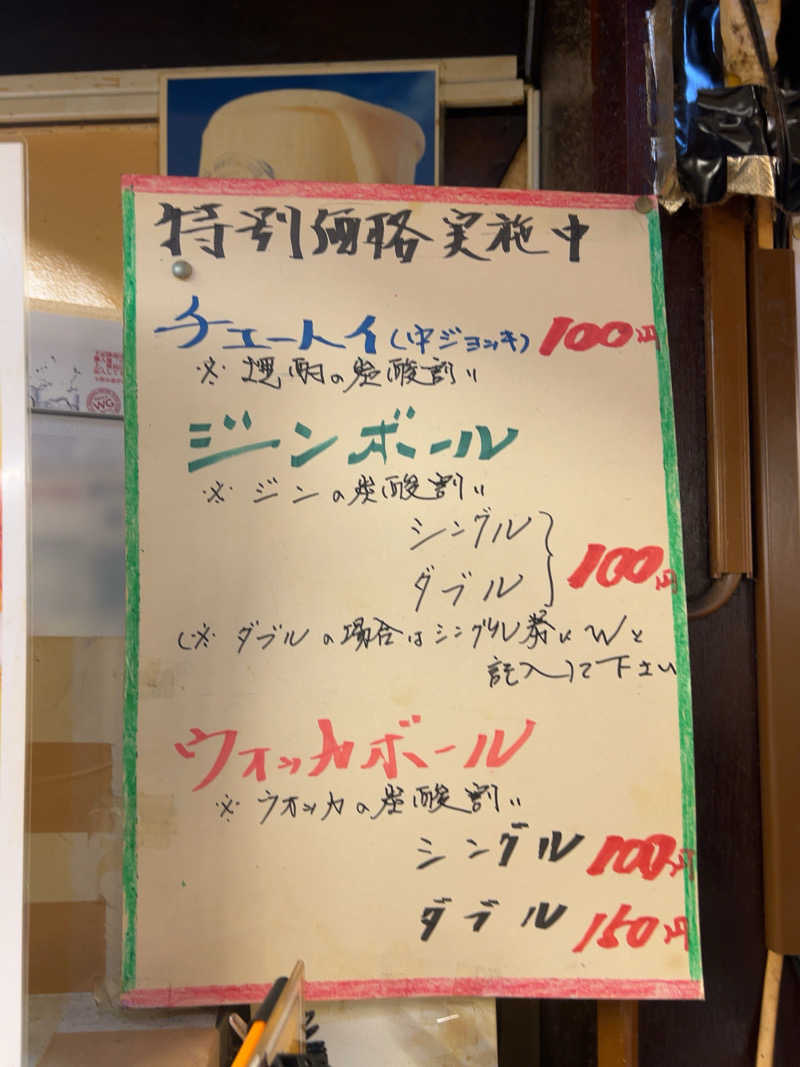 特別価格実施中
チューハイ(中ジョッキ) 100円
※ 焼酎の炭酸割り
ジンボール
※ ジンの炭酸割り
シングル
ダブル
100円
(※ ダブルの場合はシングル に Wと
記入して下さい
ウオッカボール
※ ウオッカの炭酸割り
シングル 100円
ダブル 150円